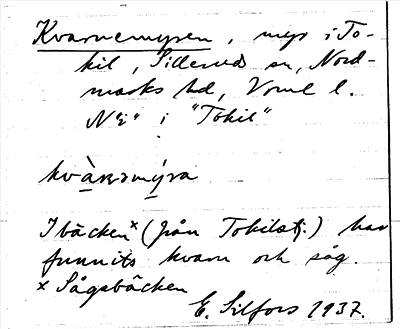 Kvarnemyren, myr i To-
kil, Sillerud sn, Nord-
marks hd, Vrml l.
NE i "Tokil"
kvà̱ɳəmý̱ra
I bäcken x (från Tokilstj.) har
funnits kvarn och såg.
x Sågebäcken
E. Silfors 1937.